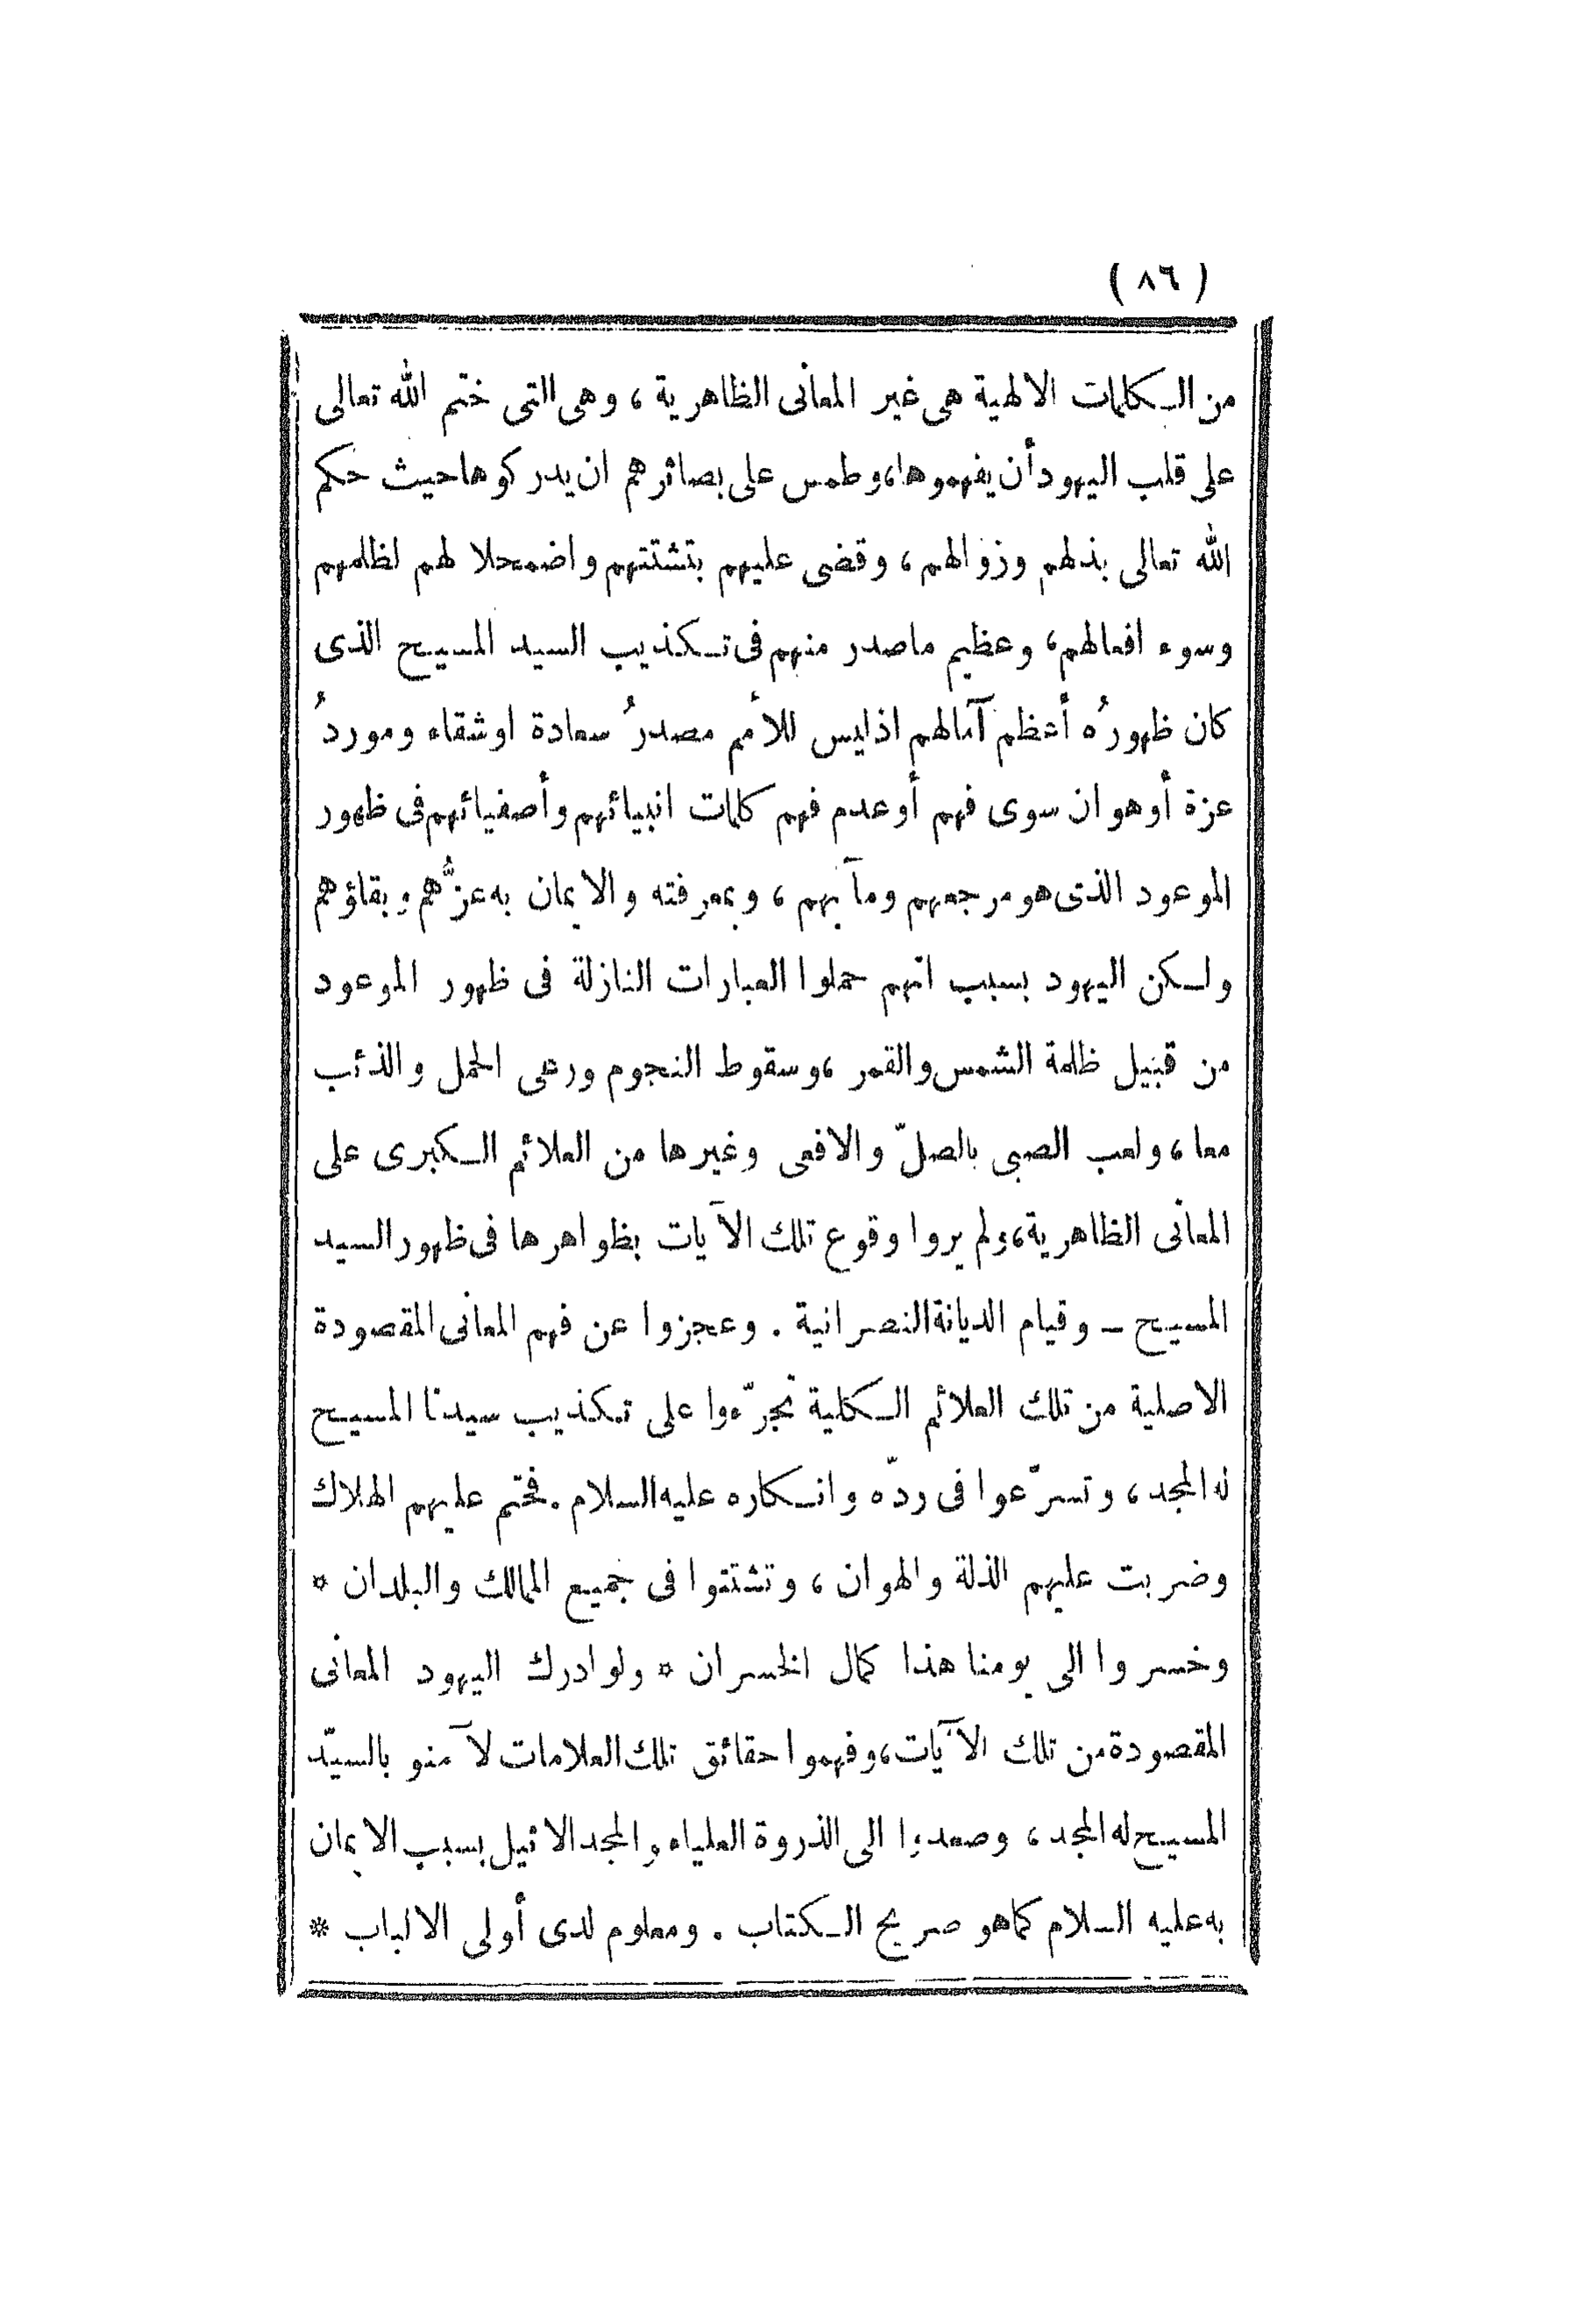 ( ٨٦ )
من الكلمات الالهية هى غير المعانى الظاهرية ، وهى التى ختم الله تعالى
على قلب اليهود أن يفهموها، وطمس على بصائرهم ان يدركوها حيث حكم
الله تعالى بذلهم وزوالهم ، وقضى عليهم بتشتتهم واضمحلا لهم لظلمهم
وسوء افعالهم، وعظيم ماصدر منهم فى تكذيب السيد المسيح الذى
كان ظهورُه أعظم آمالهم اذ ليس للأمم مصدرُ سعادة اوشقاء وموردُ
عزة أوهوان سوى فهم أوعدم فهم كلمات انبيائهم وأصفيائهم فى ظهور
الموعود الذى هو مرجعهم ومآبهم ، وبمعرفته والايمان به عزُّهم وبقاؤهم
ولكن اليهود بسبب انهم حملوا العبارات النازلة فى ظهور الموعود
من قبيل ظلمة الشمس والقمر ،وسقوط النجوم ورعى الحمل والذئب
معا ، ولعب الصبى بالصلّ والافعى وغيرها من العلائم الكبرى على
المعانى الظاهرية، ولم يروا وقوع تلك الآيات بظواهرها فى ظهور السيد
المسيح ــ وقيام الديانة النصرانية . وعجزوا عن فهم المعانى المقصودة
الاصلية من تلك العلائم الكلية تجرّءوا على تكذيب سيدنا المسيح
له المجد ، وتسرّعوا فى ردّه وانكاره عليه السلام . فختم عليهم الهلاك
وضربت عليهم الذلة والهوان ، وتشتتوا فى جميع الممالك والبلدان *
وخسروا الى يومنا هذا كمال الخسران * ولو ادرك اليهود المعانى
المقصودة من تلك الآيات، وفهموا حقائق تلك العلامات لآمنو بالسيّد
المسيح له المجد ، وصعدوا الى الذروة العلياء والمجد الاثيل بسبب الايمان
به عليه السلام كماهو صريح الكتاب . ومعلوم لدى أولى الالباب *